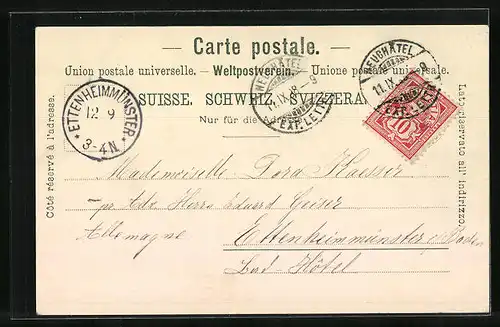 Carte postale.
Union postale universelle. — Weltpostverein. — Unione postale universale.
SUISSE. SCHWEIZ. SVIZZERA.
Nur für die Adresse.
Côté réservé à l'adresse.
Lato riservato all' indirizzo.
ETTENHEIMMÜNSTER
12 9
3-4N.
NEUCHÂTEL
11.IX.
9
EXP. LETT.
NEUCHÂTEL
11.IX.
9
EXP. LETT.
10
Mademoiselle Dora Haeser
pr Adr. Herrn Eduard Geiser
Allemagne
Ettenheimmünster Baden
Bad-Hôtel